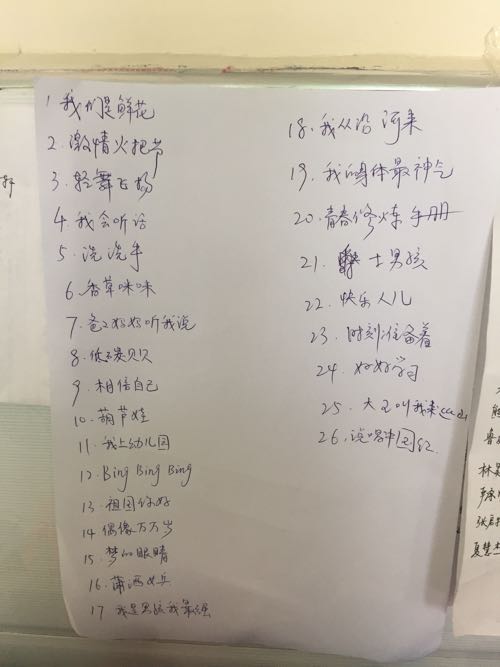 1 我们是鲜花
2. 激情火把节
3. 轻舞飞扬
4. 我会听话
5. 洗洗手
6. 香草咪咪
7. 爸爸妈妈听我说
8. 低碳贝贝
9. 相信自己
10. 葫芦娃
11. 我上幼儿园
12. Bing Bing Bing
13. 祖国你好
14 偶像万万岁
15. 梦的眼睛
16. 潇洒女兵
17 我是男孩我最强
18. 我从沿河来
19. 我的身体最神气
20. 青春修炼手册
21. 士男孩
22. 快乐人儿
23. 时刻准备着
24. 好好学习
25. 大王叫我来巡山
26. 说唱中国红
林